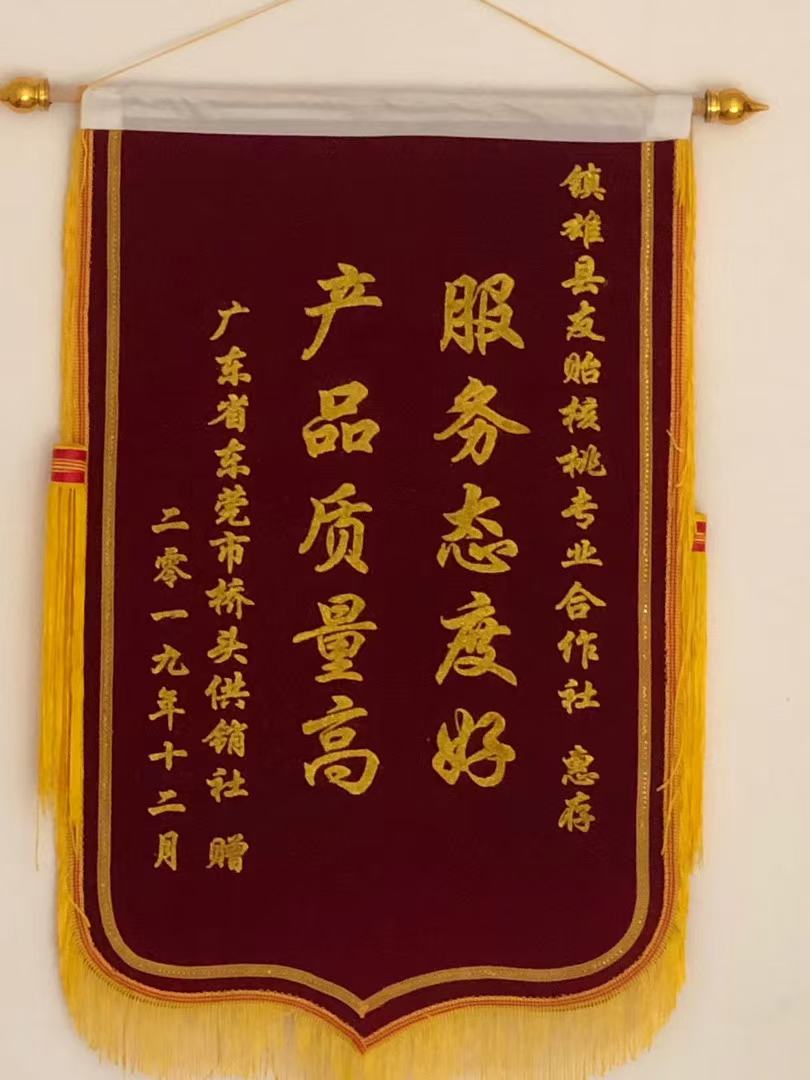 镇雄县友贻核桃专业合作社 惠存
服务态度好
产品质量高
广东省东莞市桥头供销社 赠
二零一九年十二月